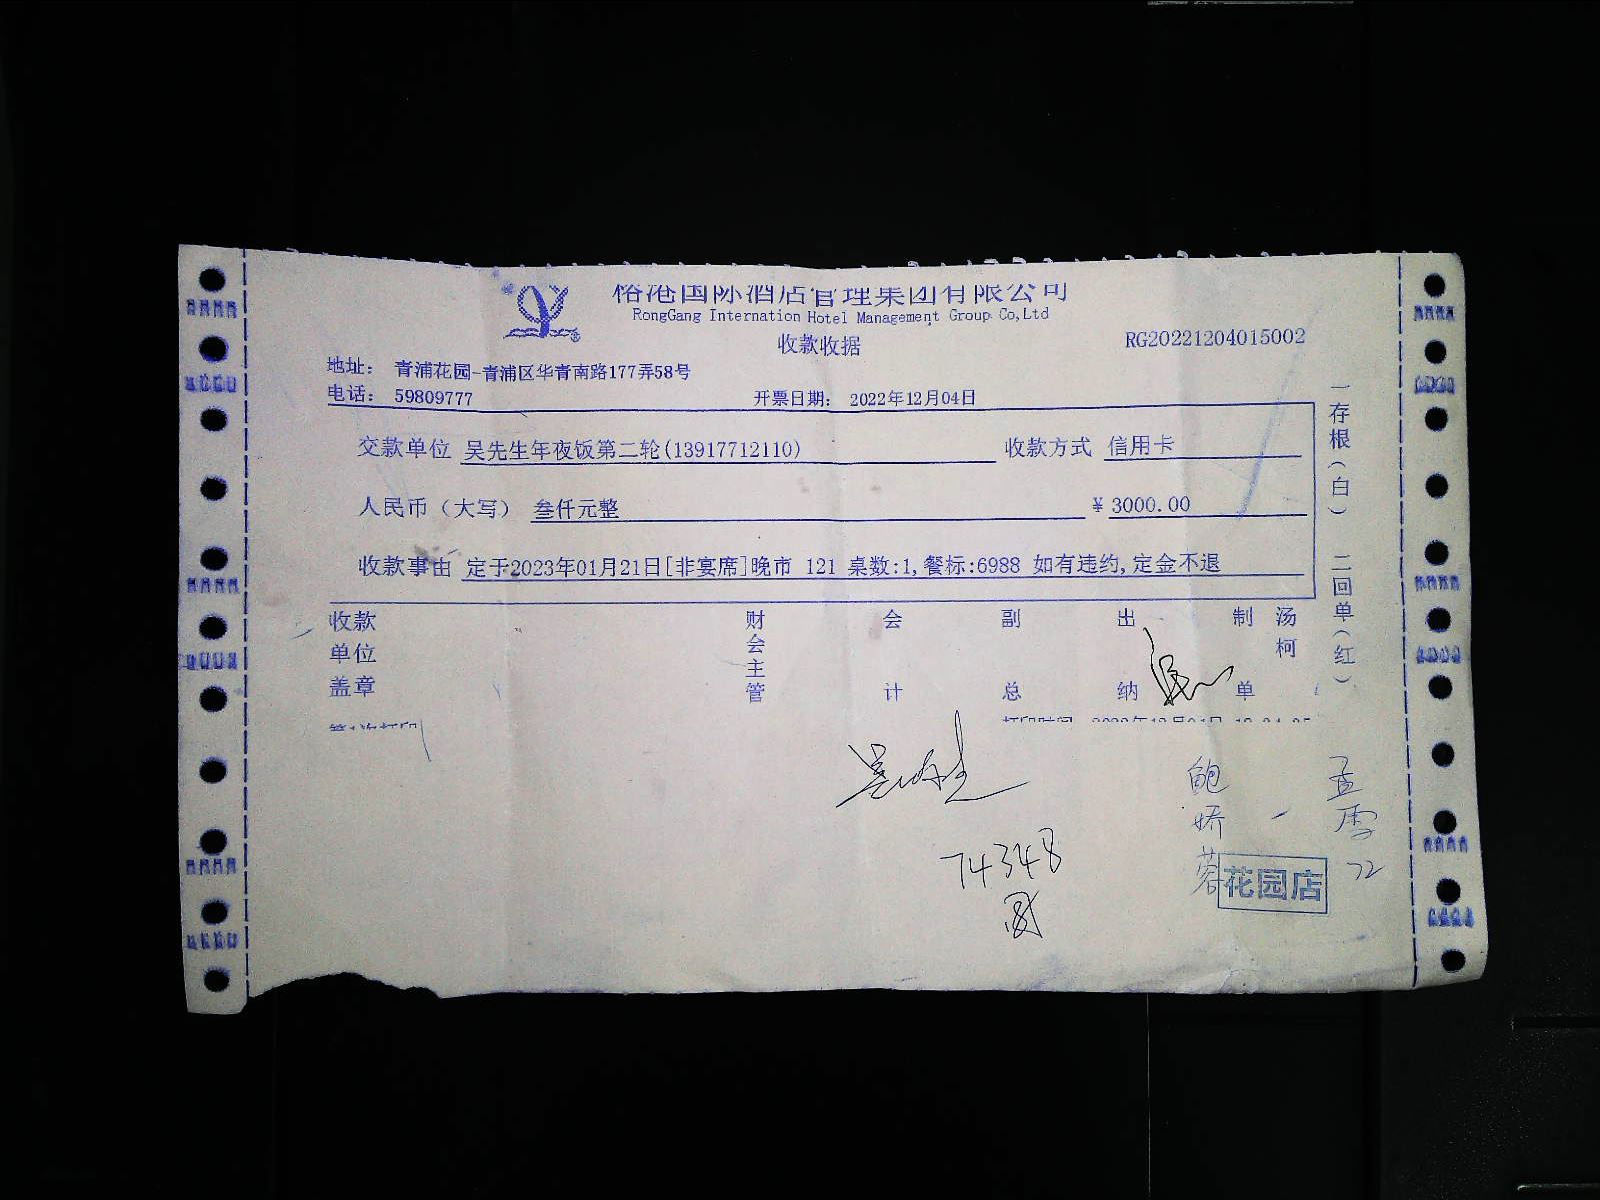 榕港国际酒店管理集团有限公司
RongGang Internation Hotel Management Group Co,Ltd
收款收据
RG20221204015002
地址： 青浦花园-青浦区华青南路177弄58号
电话： 59809777 开票日期： 2022年12月04日
交款单位 吴先生年夜饭第二轮(13917712110) 收款方式 信用卡
人民币（大写） 叁仟元整 ¥3000.00
收款事由 定于2023年01月21日[非宴席]晚市 121 桌数:1,餐标:6988 如有违约,定金不退
一存根（白） 二回单（红）
收款单位盖章 财会主管 会计 副总 出纳 制单 汤柯
第1次打印
74348
鲍娇蓉
孟雪
72
花园店